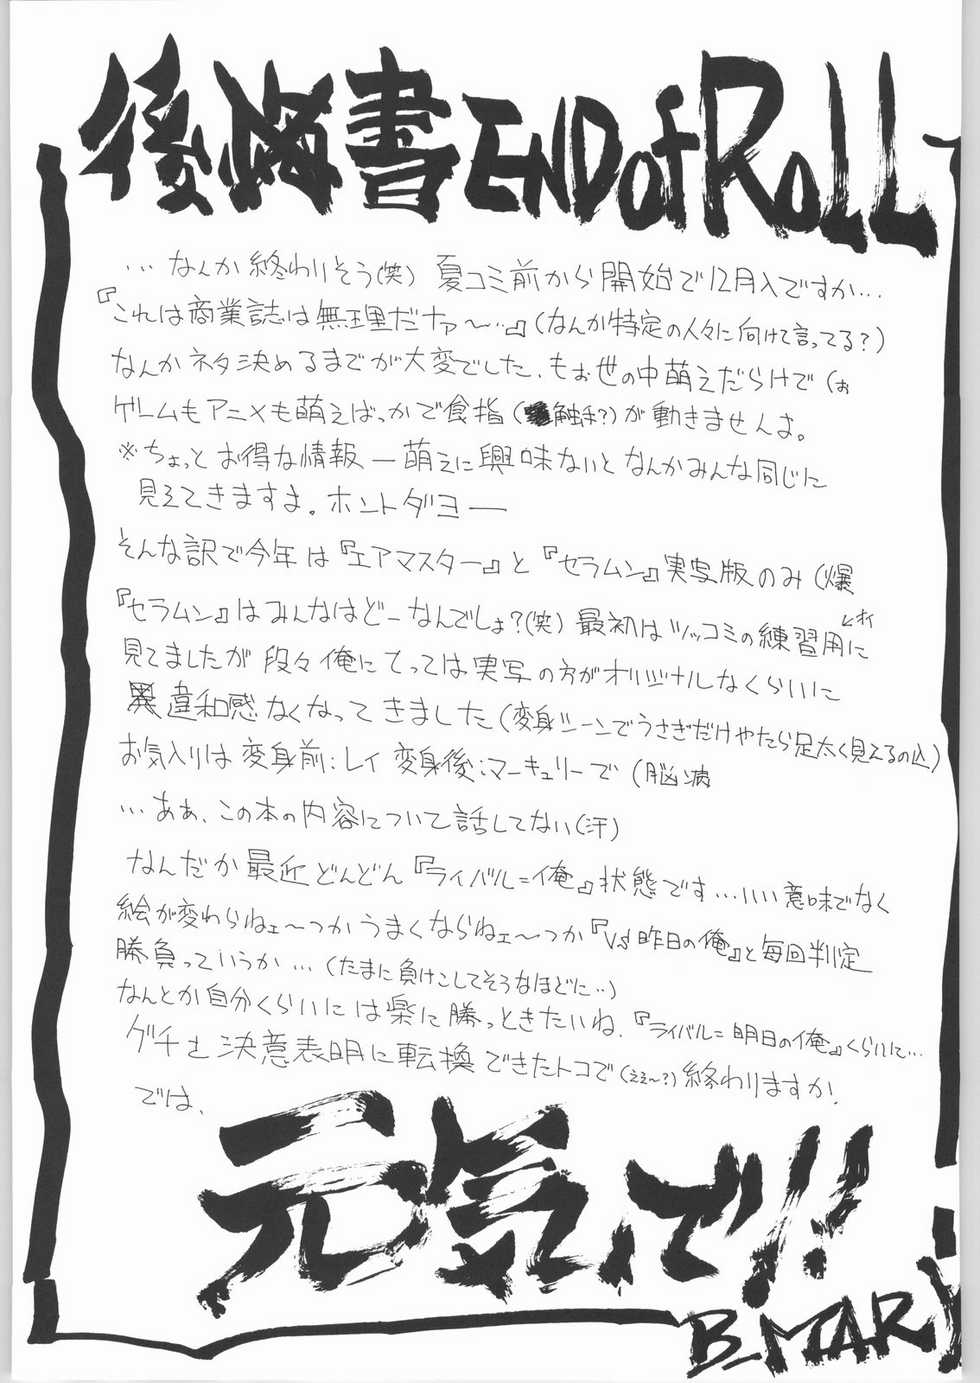 後悔書 END of RoLL
…なんか終わりそう(笑) 夏コミ前から開始で12月入ですか…
『これは商業誌は無理だナァ〜…』(なんか特定の人々に向けて言ってる?)
なんかネタ決めるまでが大変でした、もぉ世の中萌えだらけで(ぉ
ゲームもアニメも萌えばっかで食指(触手?)が動きませんよ。
※ちょっとお得な情報 ― 萌えに興味ないとなんかみんな同じに
見えてきますよ。ホントダヨー
そんな訳で今年は『エアマスター』と『セラムン』実写版のみ(爆
『セラムン』はみんなはどーなんでしょ?(笑) 最初はツッコミの練習用に
見てましたが段々俺にとっては実写の方がオリジナルなくらいに
違和感なくなってきました(変身シーンでうさぎだけやたら足太く見えるの込)
お気入りは変身前:レイ 変身後:マーキュリーで (脳病
…ああ、この本の内容について話してない(汗)
なんだか最近どんどん『ライバル=俺』状態です…いい意味でなく
絵が変わらねェ〜つかうまくならねェ〜つか『VS昨日の俺』と毎回判定
勝負っていうか…(たまに負けこしてそうなほどに…)
なんとか自分くらいには楽に勝っときたいね、『ライバル=明日の俺』くらいに…
グチを決意表明に転換できたトコで(ええ〜?)終わりますか!
では、
元気で!!
B_MARY